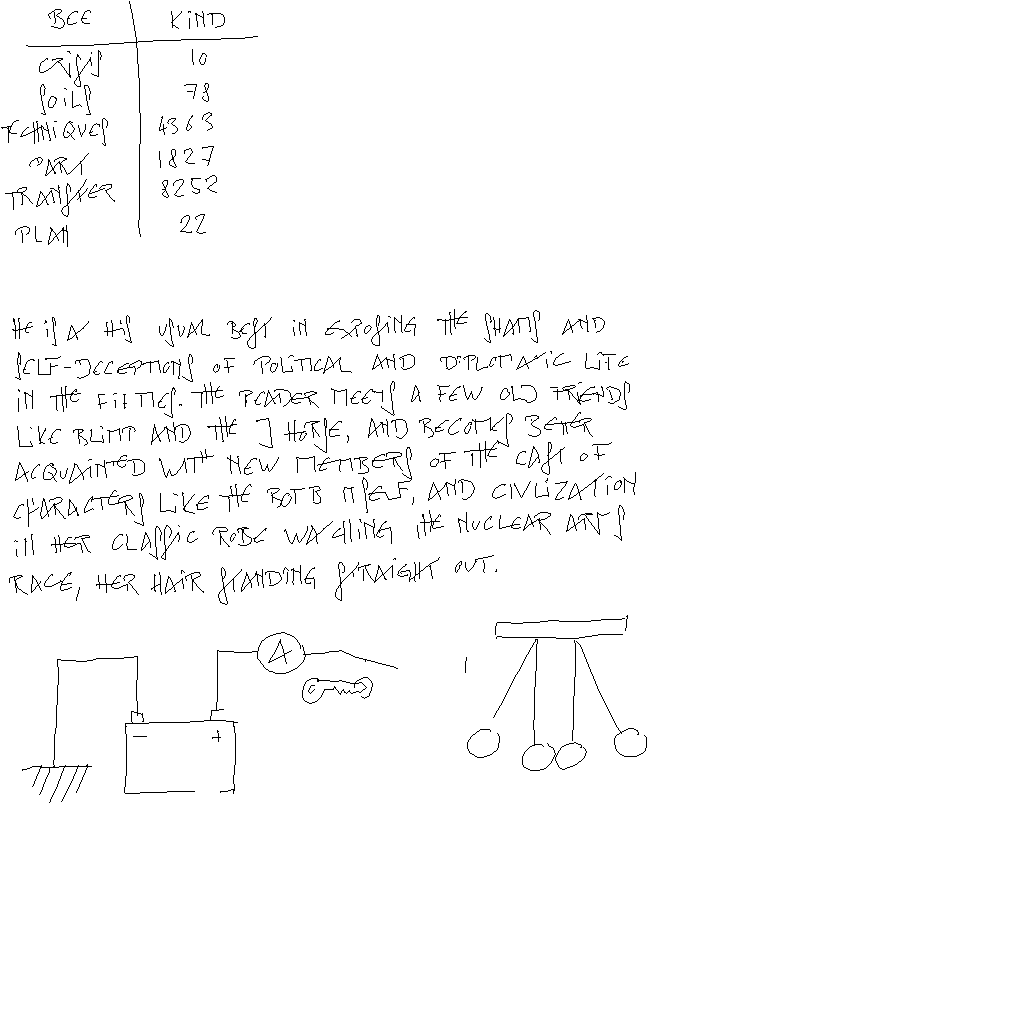 BCE KIND
CRISIS 10
SOILS 78
TECHNIQUES 4363
PART 1827
TRANSFER 8252
PLAN 22
HE IS A HIS USUAL BEST IN EXPOSING THE SHAMS AND
SELF-DECEPTIONS OF POLITICAL AND DIPLOMATIC LIFE
IN THE FIFTIES. THE READER MEETS A FEW OLD FRIENDS
LIKE BLIMP AND THE HORSE, AND BECOMES BETTER
ACQUAINTED WITH NEW MEMBERS OF THE CAST OF
CHARACTERS LIKE THE BOMB ITSELF, AND CIVILIZATION
IN HER CLASSIC ROBE WATCHING THE NUCLEAR ARMS
RACE, HER HAIR STANDING STRAIGHT OUT.
- +
A